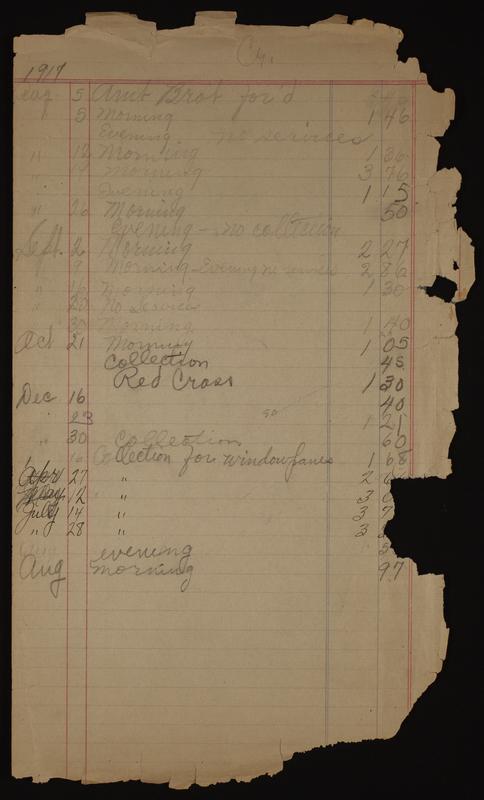 Cr.
1917
Aug 5 Amt Brot for'd
" 5 Morning 1 46
Evening no services
" 12 Morning 1 36
" 19 Morning 3 76
Evening 1 15
" 26 Morning 50
Evening - no collection
Sept. 2 Morning 2 27
" 9 Morning - Evening no services 2 86
" 16 Morning 1 30
" 20 No Services
30 Morning 1 40
Oct 21 Morning 1 05
Collection 45
Red Cross 1 30
Dec 16 40
23 1 21
" 30 Collection 60
Collection for window panes 1 68
Apr 27 " 2
May 12 " 3
July 14 " 3
" 28 " 3
evening
Aug morning 97